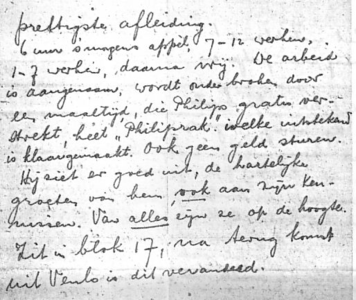 prettigste afleiding.
6 uur s'morgens appèl. 7-12 werken,
1-7 werken, daarna vrij. De arbeid
is aangenaam, wordt onderbroken door
een maaltijd, die Philips gratis ver-
strekt, heet "Philiprak" welke uitstekend
is klaargemaakt. Ook geen geld sturen.
Hij ziet er goed uit, de hartelijke
groeten van hem, ook aan zijn ken-
nissen. Van alles zijn ze op de hoogte.
Zit in blok 17, na terug komst
uit Venlo is dit veranderd.